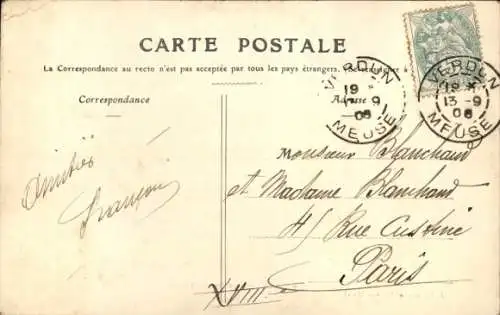 CARTE POSTALE
La Correspondance au recto n'est pas acceptée par tous les pays étrangers.
Correspondance
Adresse
VERDUN
19
13 - 9
06
MEUSE
VERDUN
13 - 9
06
MEUSE
Amitiés
François
Monsieur Blanchaud
et Madame Blanchaud
Rue Custine
Paris
XVIII